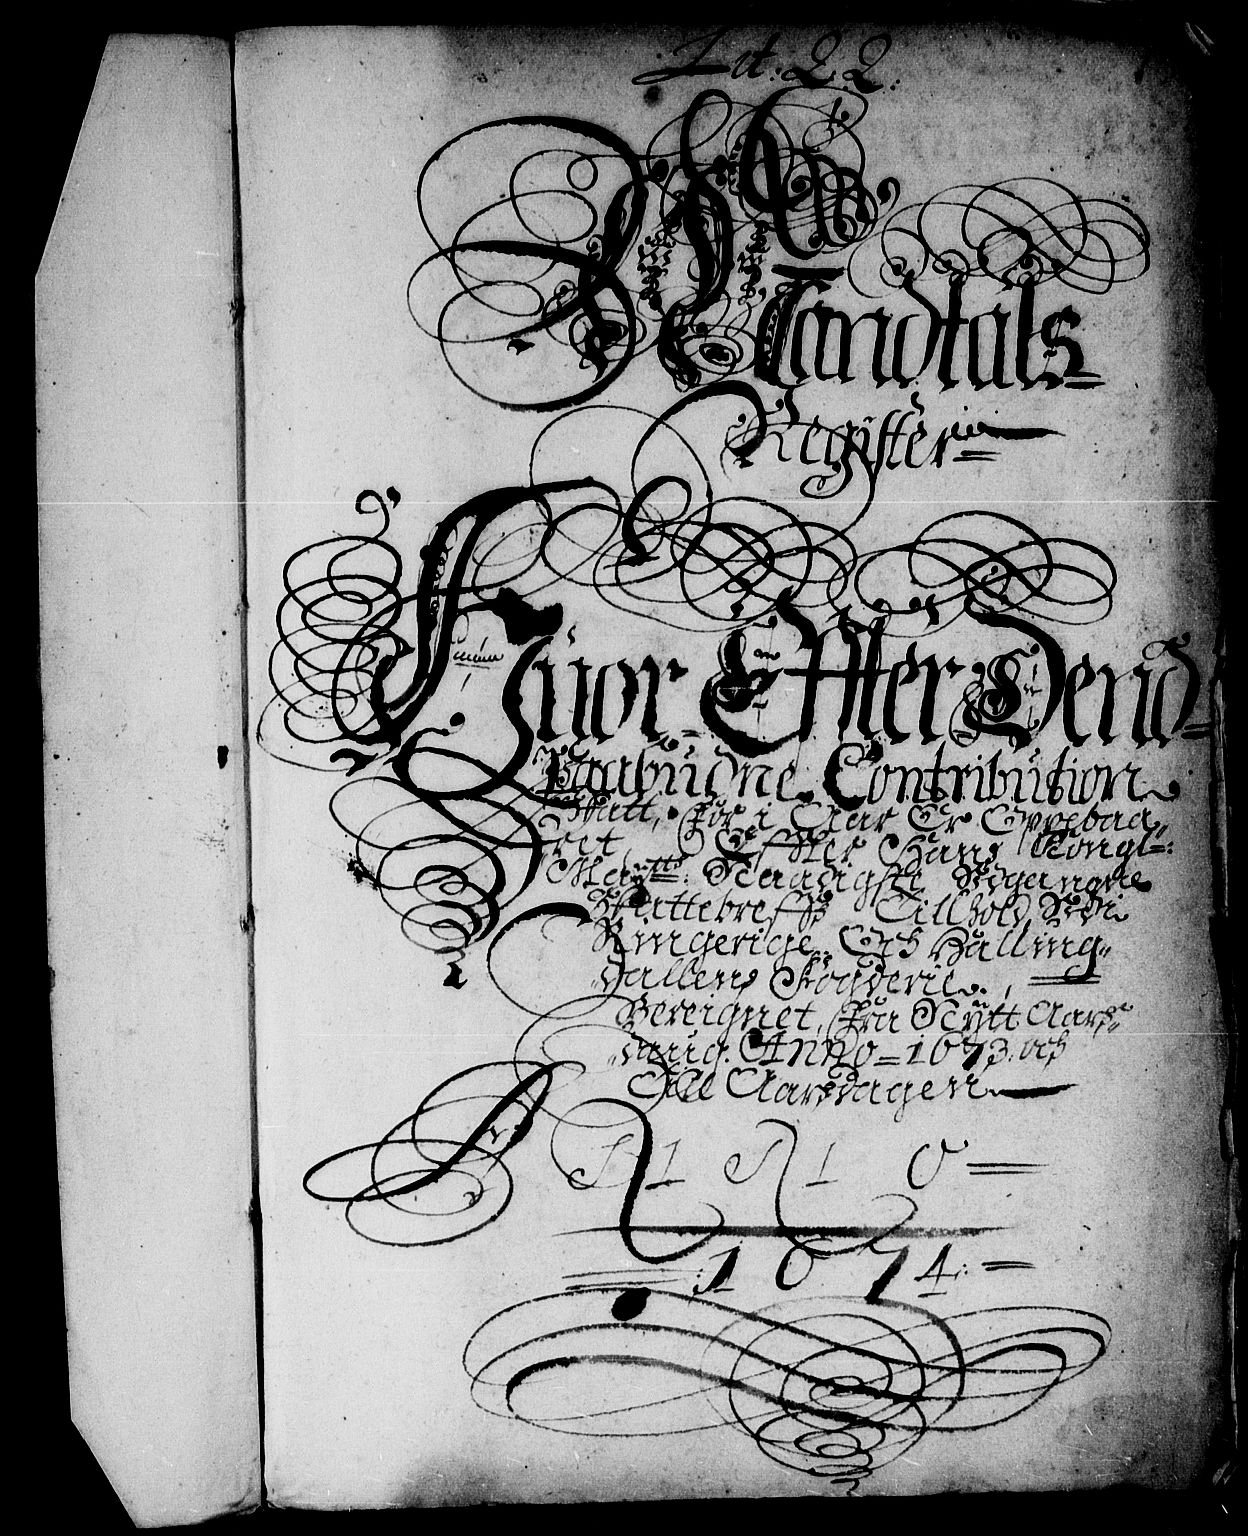 Lit: Q2:
Mandtals
Register
Huor Effter Dend
Paabudne Contribution
Skatt, for i Aar Er Oppebaa,,
rit, Effter Hans Kongl:
Maytts: Naadigste Udgangne
Skattebreffs Tilhold, Udi
Ringerige Och Halling,,
dallens Fogderie,
Bereignet, fra Nytt Aars,,
daug Anno 1673. och
Till Aarsdagen
ANNO
1674.